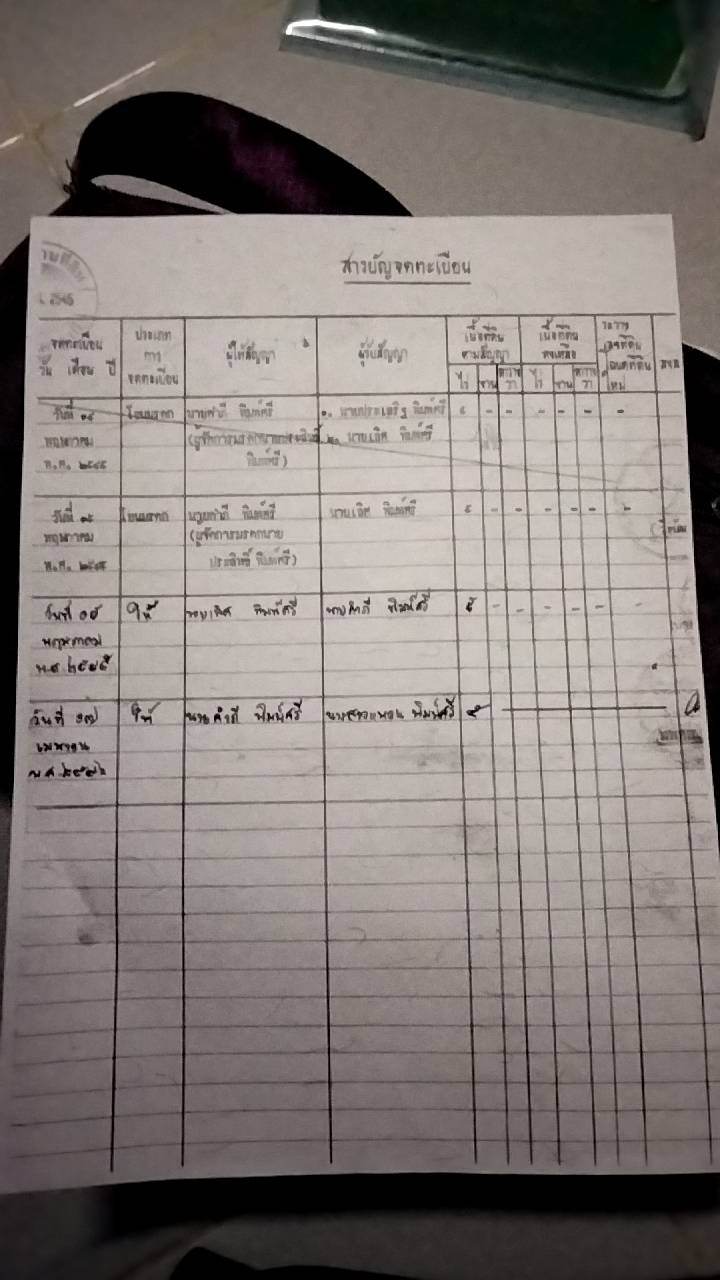 ๒๕๔๕
สารบัญจดทะเบียน
จดทะเบียน วัน เดือน ปี
ประเภท การ จดทะเบียน
ผู้ให้สัญญา
ผู้รับสัญญา
เนื้อที่ดิน ตามสัญญา
ไร่ งาน ตาราง วา
เนื้อที่ดิน คงเหลือ
ไร่ งาน ตาราง วา
ระวาง เลขที่ดิน โฉนดที่ดิน ใหม่
วันที่ โอนมรดก นายคำภี พิมพ์ศรี ๑. นายประเสริฐ พิมพ์ศรี - - - - - -
พฤษภาคม (ผู้จัดการมรดกนายประสิทธิ์ ๒. นายเลิศ พิมพ์ศรี
พ.ศ. ๒๕๔๕ พิมพ์ศรี)
วันที่ โอนมรดก นายคำภี พิมพ์ศรี นายเลิศ พิมพ์ศรี ๕ - - - - - -
พฤษภาคม (ผู้จัดการมรดกนาย
พ.ศ. ๒๕๔๕ ประสิทธิ์ พิมพ์ศรี)
วันที่ ๑๕ ให้ นายเลิศ พิมพ์ศรี นายคำภี พิมพ์ศรี ๕ - - - - - -
พฤษภาคม
พ.ศ. ๒๕๔๕
วันที่ ๑๗ ให้ นายคำภี พิมพ์ศรี นางสาว พิมพ์ศรี ๕
เมษายน
พ.ศ.